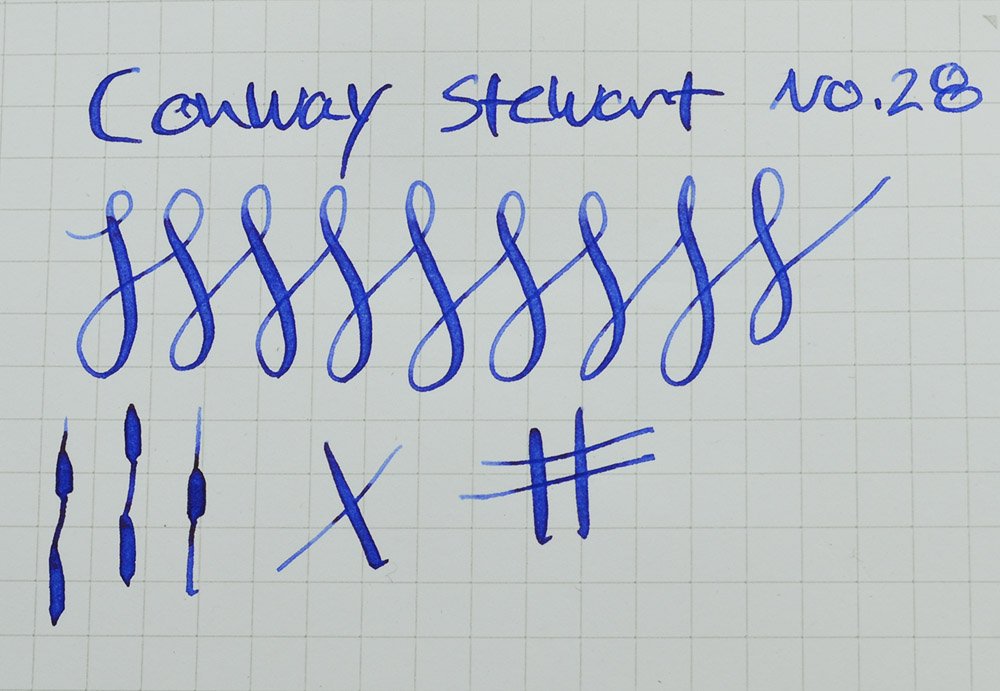 Conway Stewart No.28
X #